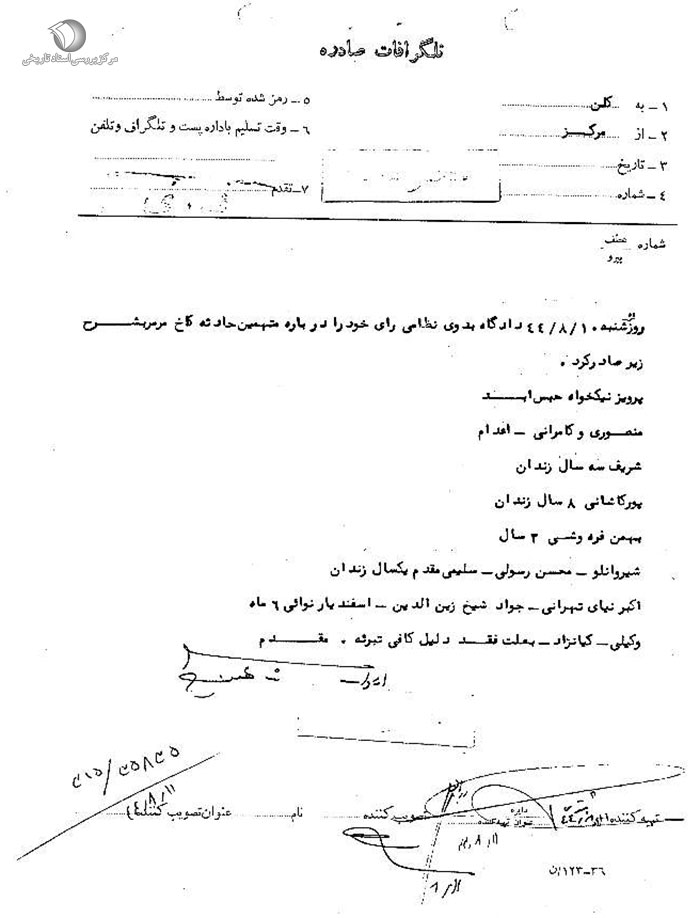 مرکز بررسی اسناد تاریخی
تلگرافات صادره
۱ـ به کلن
۲ـ از مرکز
۳ـ تاریخ
۴ـ شماره
۵ـ رمز شده توسط
۶ـ وقت تسلیم باداره پست و تلگراف و تلفن
۷ـ تقدم
شماره عطف
پیرو
روزشنبه ۴۴/۸/۱۰ دادگاه بدوی نظامی رای خود را درباره متهمین حادثه کاخ مرمر بشرح
زیر صادر کرد .
پرویز نیکخواه حبس ابد
منصوری و کامرانی ـ اعدام
شریف سه سال زندان
پورکاشانی ۸ سال زندان
بهمن فره وشی ۳ سال
شیروانلو ـ محسن رسولی ـ سلیمی مقدم یکسال زندان
اکبر نیای تهرانی ـ جواد شیخ زین الدین ـ اسفندیار نوائی ۶ ماه
وکیلی ـ کیانزاد ـ بعلت فقد دلیل کافی تبرئه . مقدم
تهیه کننده
تصویب کننده
نام
عنوان تصویب کننده
۳۶ـ۱۲۳/ن